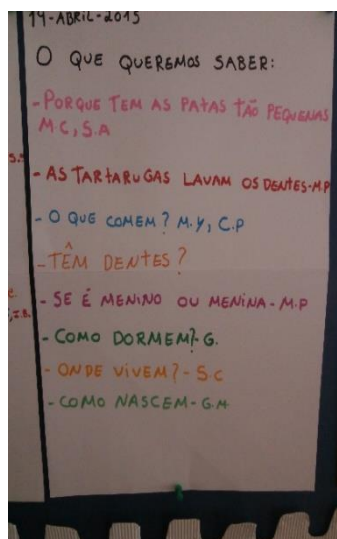 14-ABRIL-2015
O QUE QUEREMOS SABER:
- PORQUE TEM AS PATAS TÃO PEQUENAS
MC, S.A
- AS TARTARUGAS LAVAM OS DENTES-M.P
- O QUE COMEM? M.Y, C.P
- TÊM DENTES?
- SE É MENINO OU MENINA - M.P
- COMO DORMEM?- G.
- ONDE VIVEM? - S C
- COMO NASCEM - G.M